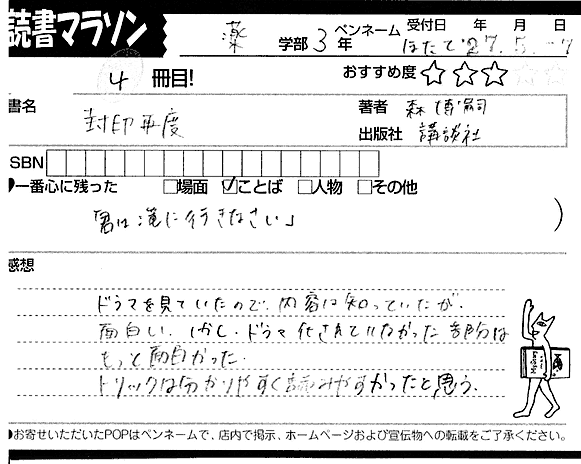 読書マラソン
薬 学部 3 年 ペンネーム ほたて 受付日 '27年 5月 7日
4 冊目! おすすめ度 ☆☆☆
書名 封印再度
著者 森博嗣
出版社 講談社
SBN
一番心に残った □場面 ☑ことば □人物 □その他
「男は滝に行きなさい」 )
感想
ドラマを見ていたので、内容は知っていたが、
面白い。しかし、ドラマ化されていなかった部分は
もっと面白かった。
トリックは分かりやすく読みやすかったと思う。
お寄せいただいたPOPはペンネームで、店内で掲示、ホームページおよび宣伝物への転載をご了承ください。